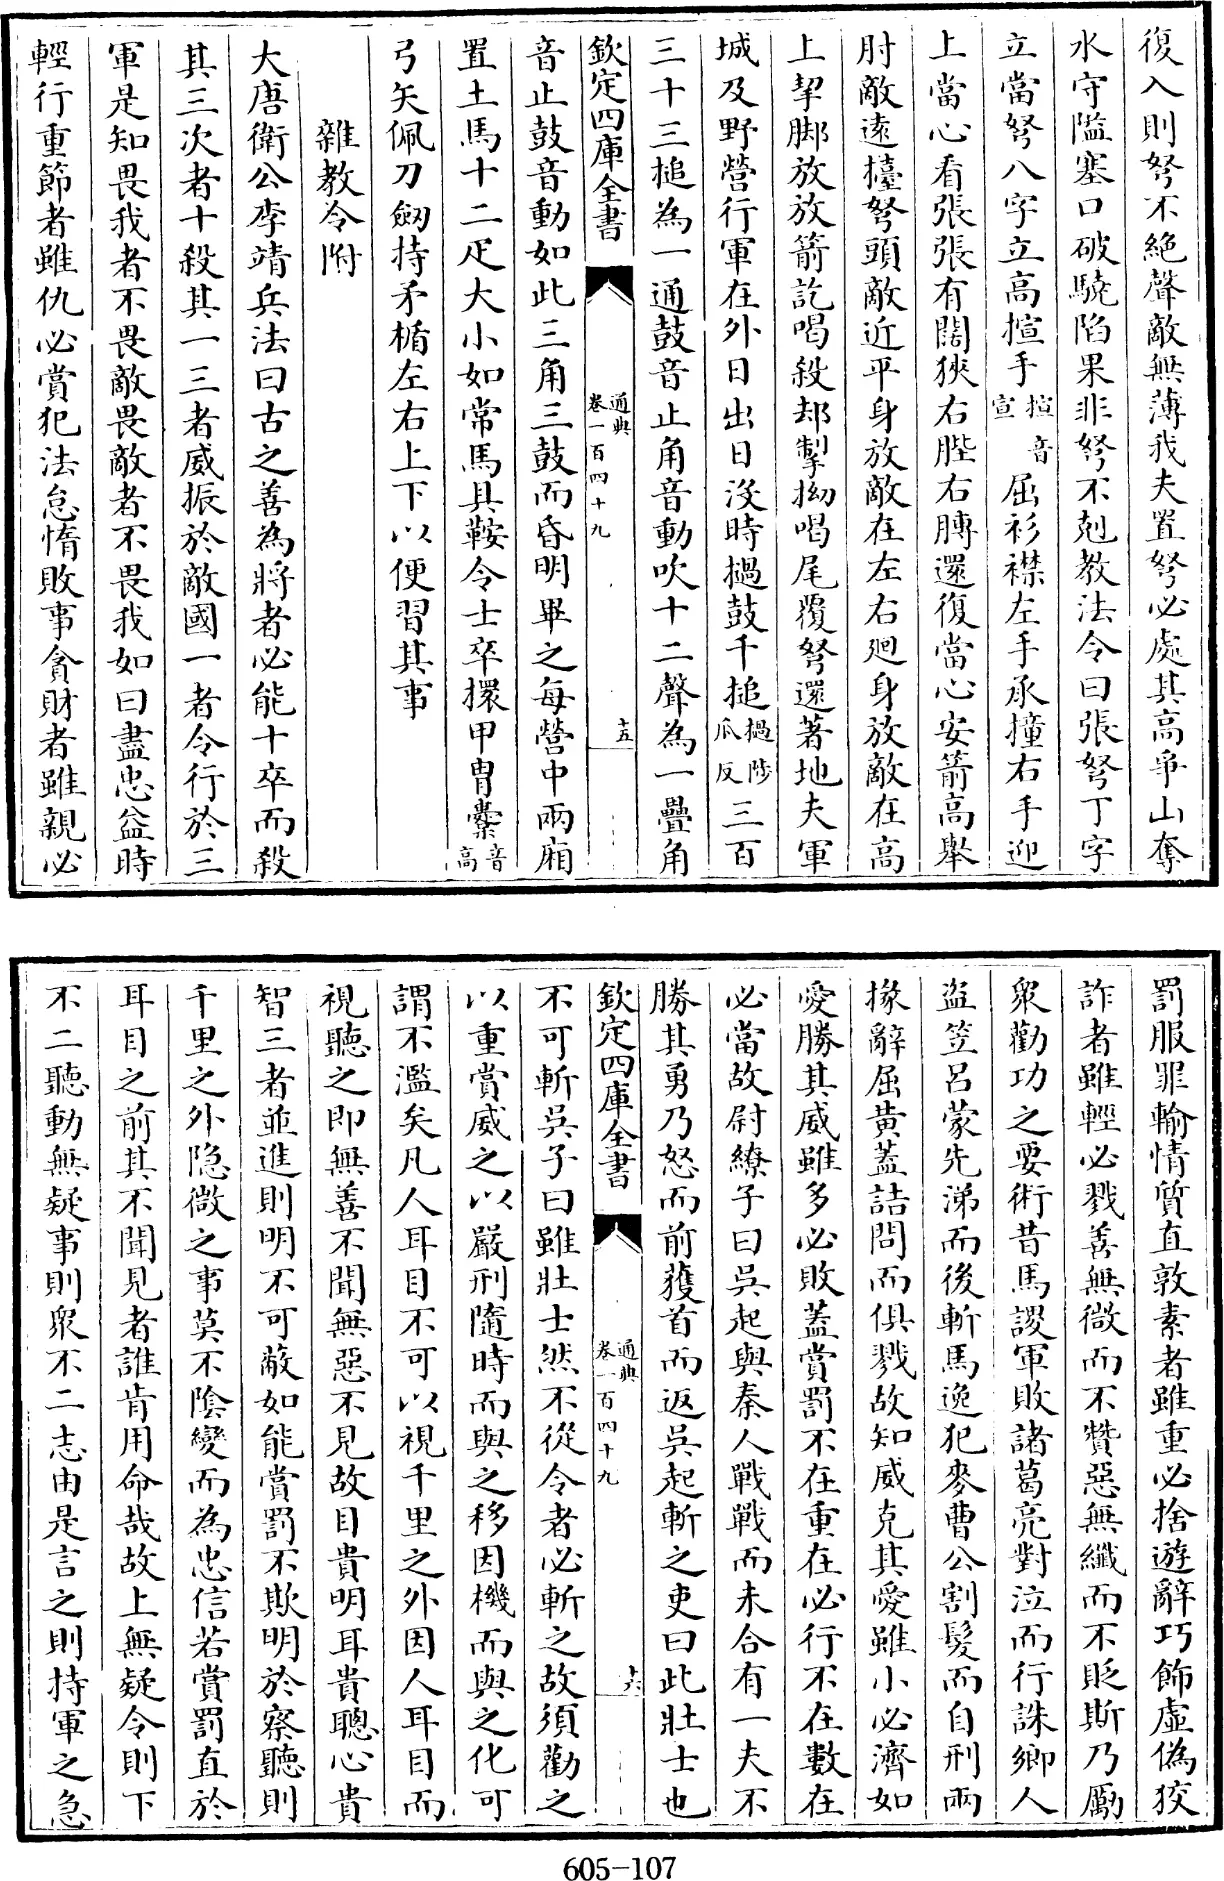 復入則弩不絶聲敵無薄我夫置弩必處其高爭山奪
水守隘塞口破驍陷果非弩不剋教法令曰張弩丁字
立當弩八字立高揎手揎音宣屈衫襟左手承撞右手迎
上當心看張張有闊狹右䏶右膊還復當心安箭高舉
肘敵遠擡弩頭敵近平身放敵在左右廻身放敵在高
上挈脚放放箭訖喝殺却掣拗喝尾覆弩還著地夫軍
城及野營行軍在外日出日没時撾鼓千搥撾陟瓜反三百
三十三搥為一通鼓音止角音動吹十二聲為一疊角
欽定四庫全書
通典
卷一百四十九
十五
音止鼓音動如此三角三鼓而昏明畢之每營中兩廂
置土馬十二疋大小如常馬具鞍令士卒擐甲胄櫜音高
弓矢佩刀劒持矛楯左右上下以便習其事
雜教令附
大唐衛公李靖兵法曰古之善為將者必能十卒而殺
其三次者十殺其一三者威振於敵國一者令行於三
軍是知畏我者不畏敵畏敵者不畏我如曰盡忠益時
輕行重節者雖仇必賞犯法怠惰敗事貪財者雖親必
罰服罪輸情質直敦素者雖重必捨遊辭巧飾虚偽狡
詐者雖輕必戮善無微而不贊惡無纖而不貶斯乃勵
衆勸功之要術昔馬謖軍敗諸葛亮對泣而行誅鄉人
盜笠呂蒙先涕而後斬馬逸犯麥曹公割髮而自刑兩
掾辭屈黄蓋詰問而俱戮故知威克其愛雖小必濟如
愛勝其威雖多必敗蓋賞罰不在重在必行不在數在
必當故尉繚子曰吳起與秦人戰戰而未合有一夫不
勝其勇乃怒而前獲首而返吳起斬之吏曰此壯士也
欽定四庫全書
通典
卷一百四十九
十六
不可斬吳子曰雖壯士然不從令者必斬之故須勸之
以重賞威之以嚴刑隨時而與之移因機而與之化可
謂不濫矣凡人耳目不可以視千里之外因人耳目而
視聽之即無善不聞無惡不見故目貴明耳貴聰心貴
智三者並進則明不可蔽如能賞罰不欺明於察聽則
千里之外隠微之事莫不陰變而為忠信若賞罰直於
耳目之前其不聞見者誰肯用命哉故上無疑令則下
不二聽動無疑事則衆不二志由是言之則持軍之急
605-107